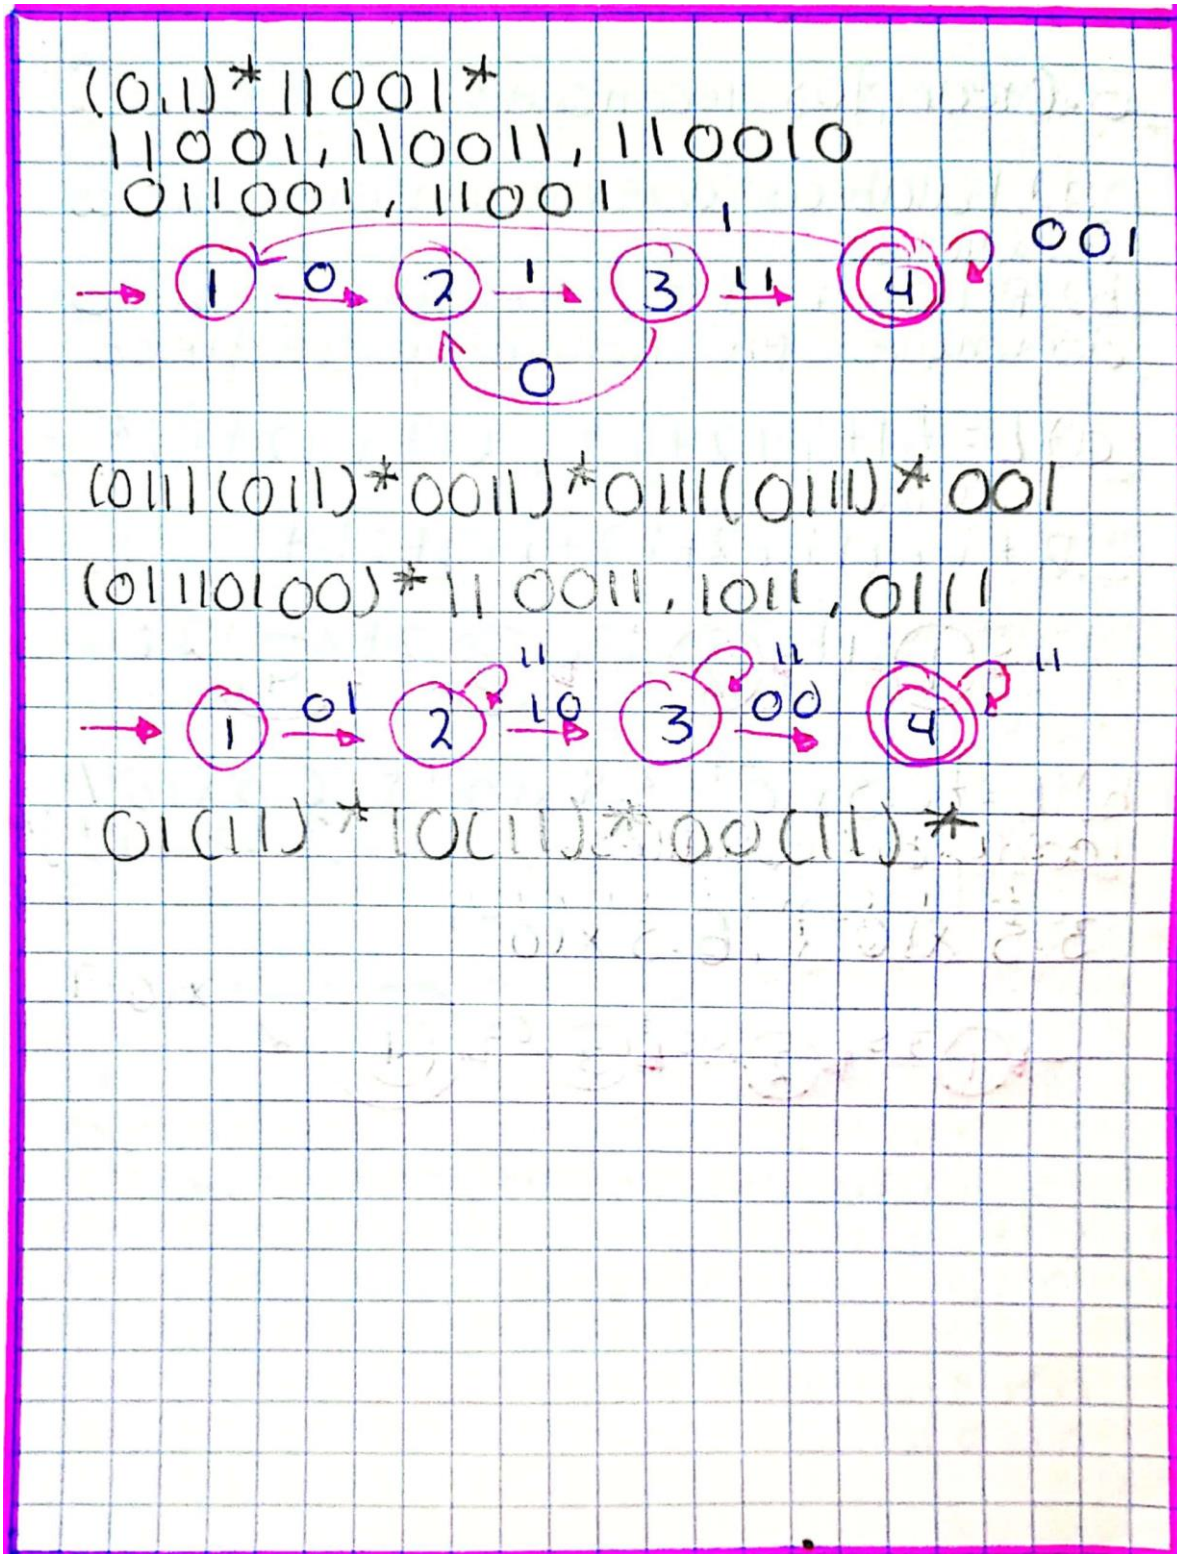 (0,1)*11001*
11001, 110011, 110010
011001, 11001
1
001
1 0 2 1 3 11 4
0
(0111(011)*0011)*01111(0111)*001
(01110100)*110011, 1011, 0111
11 11 11
1 01 2 10 3 00 4
01(11)*10(11)*00(11)*